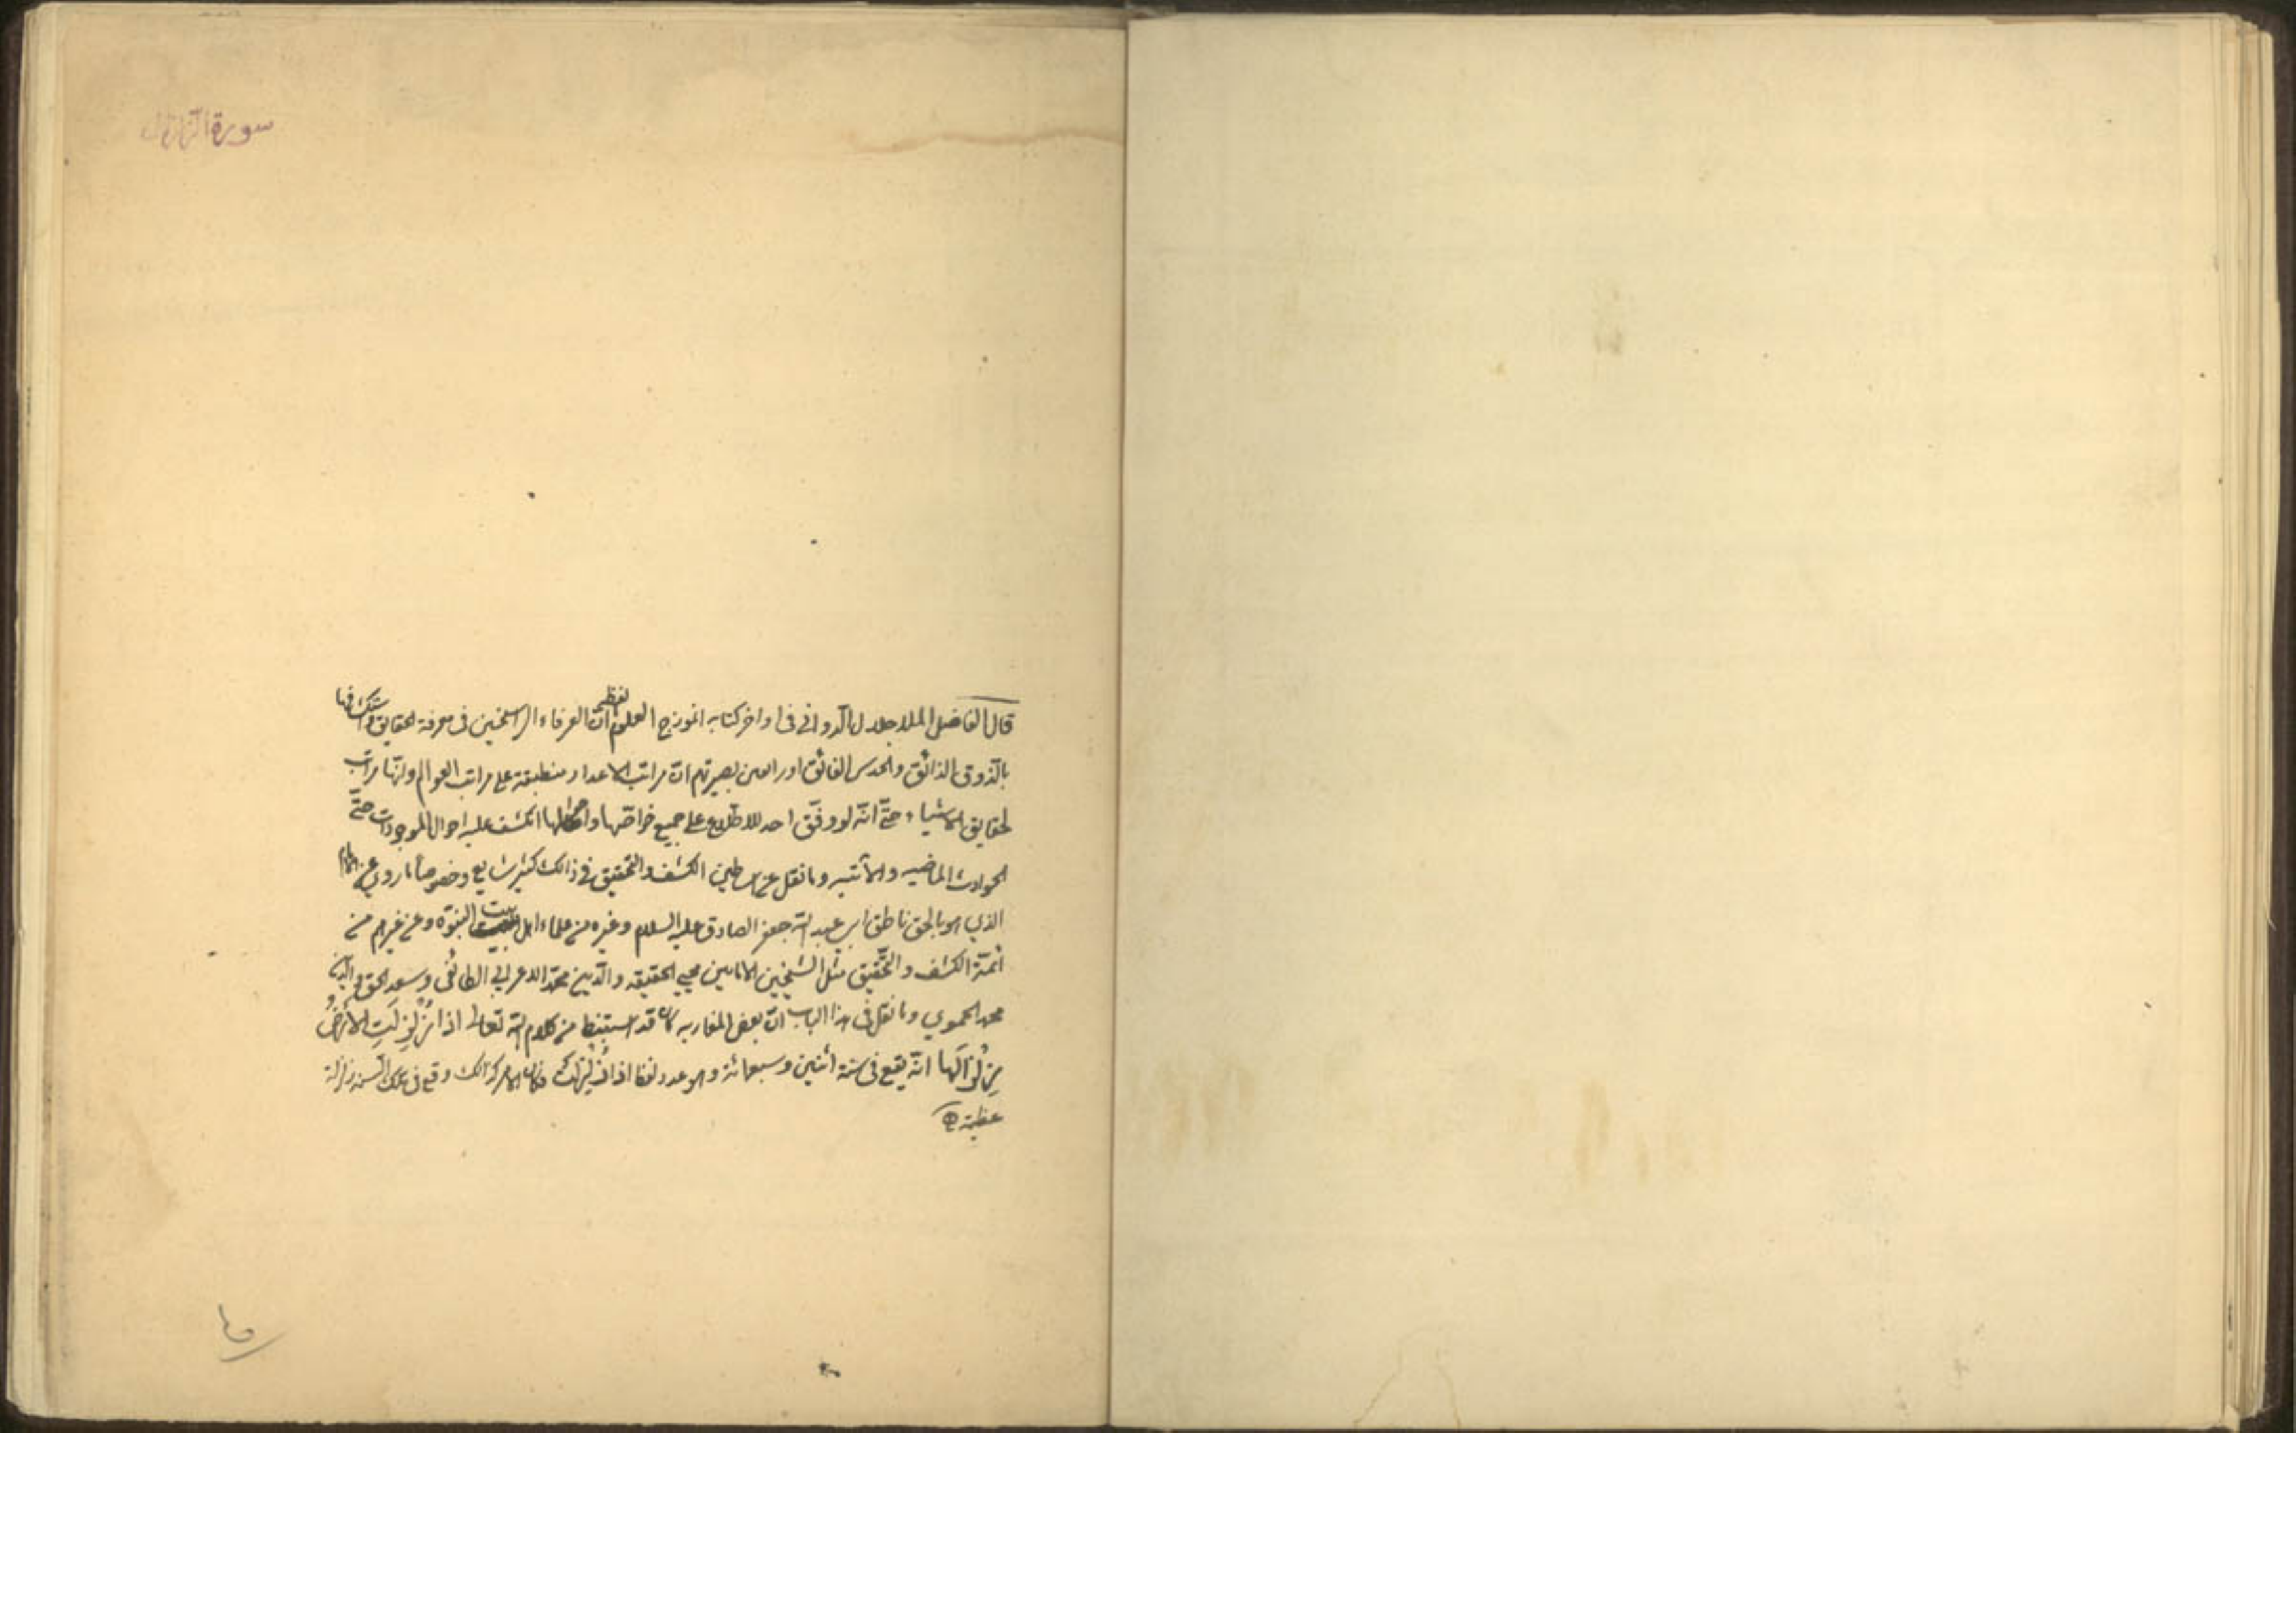 سورة الزلزال
قال الفاضل الملا جلال الدواني في اواخر كتابه انموزج العلوم ان العرفاء الراسخين في معرفة الحقايق
بالذوق الذائق والحدس الفائق اورا بعين بصيرتهم ان مراتب الاعداد منطبقة على مراتب العوالم وانها مراتب
لحقايق الاشياء حتى انه لو وفق احد للاطلاع على جميع خواصها واحوالها انكشف عليه احوال الموجودات حتى
الحوادث الماضيه والآتيه وما نقل عن اساطين الكشف والتحقيق في ذالك كثير شايع وخصوصا ما روي عن الامام
الذي هو بالحق ناطق ابي عبد الله جعفر الصادق عليه السلام وغيره من علماء اهل بيت النبوة وعن غيرهم من
ائمة الكشف والتحقيق مثل الشيخين الامامين محيي الحقيقه والدين محمد الاعرابي الطائي وسعد الحق والدين
محمد الحموي وما نقل في هذا الباب ان بعض المغاربه كان قد استنبط من كلام الله تعالى اذا زُلْزِلَتِ الأرضُ
زِلْزالَها انه يقع في سنة اثنين وسبعمائة وهو عدد لفظ اذا زلزلت فكان الامر كذالك وقع في تلك السنه زلزلة
عظيمة